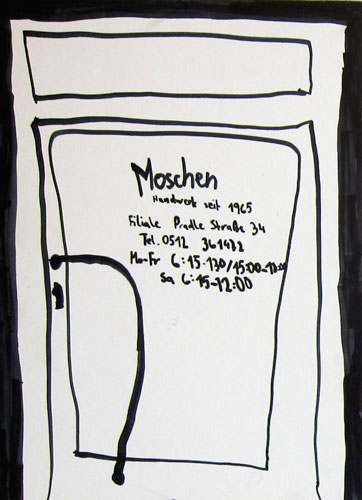 Moschen
Handwerk seit 1965
Filiale Pradle Straße 34
Tel. 0512 361422
Mo-Fr 6:15-130/15:00-18:00
Sa 6:15-12:00